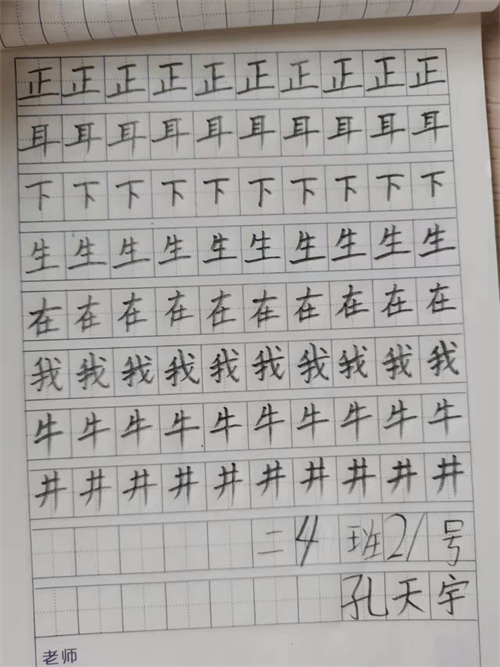 正正正正正正正正正正
耳耳耳耳耳耳耳耳耳耳
下下下下下下下下下下
生生生生生生生生生生
在在在在在在在在在在
我我我我我我我我我我
牛牛牛牛牛牛牛牛牛牛
井井井井井井井井井井
二4班21号
孔天宇
老师